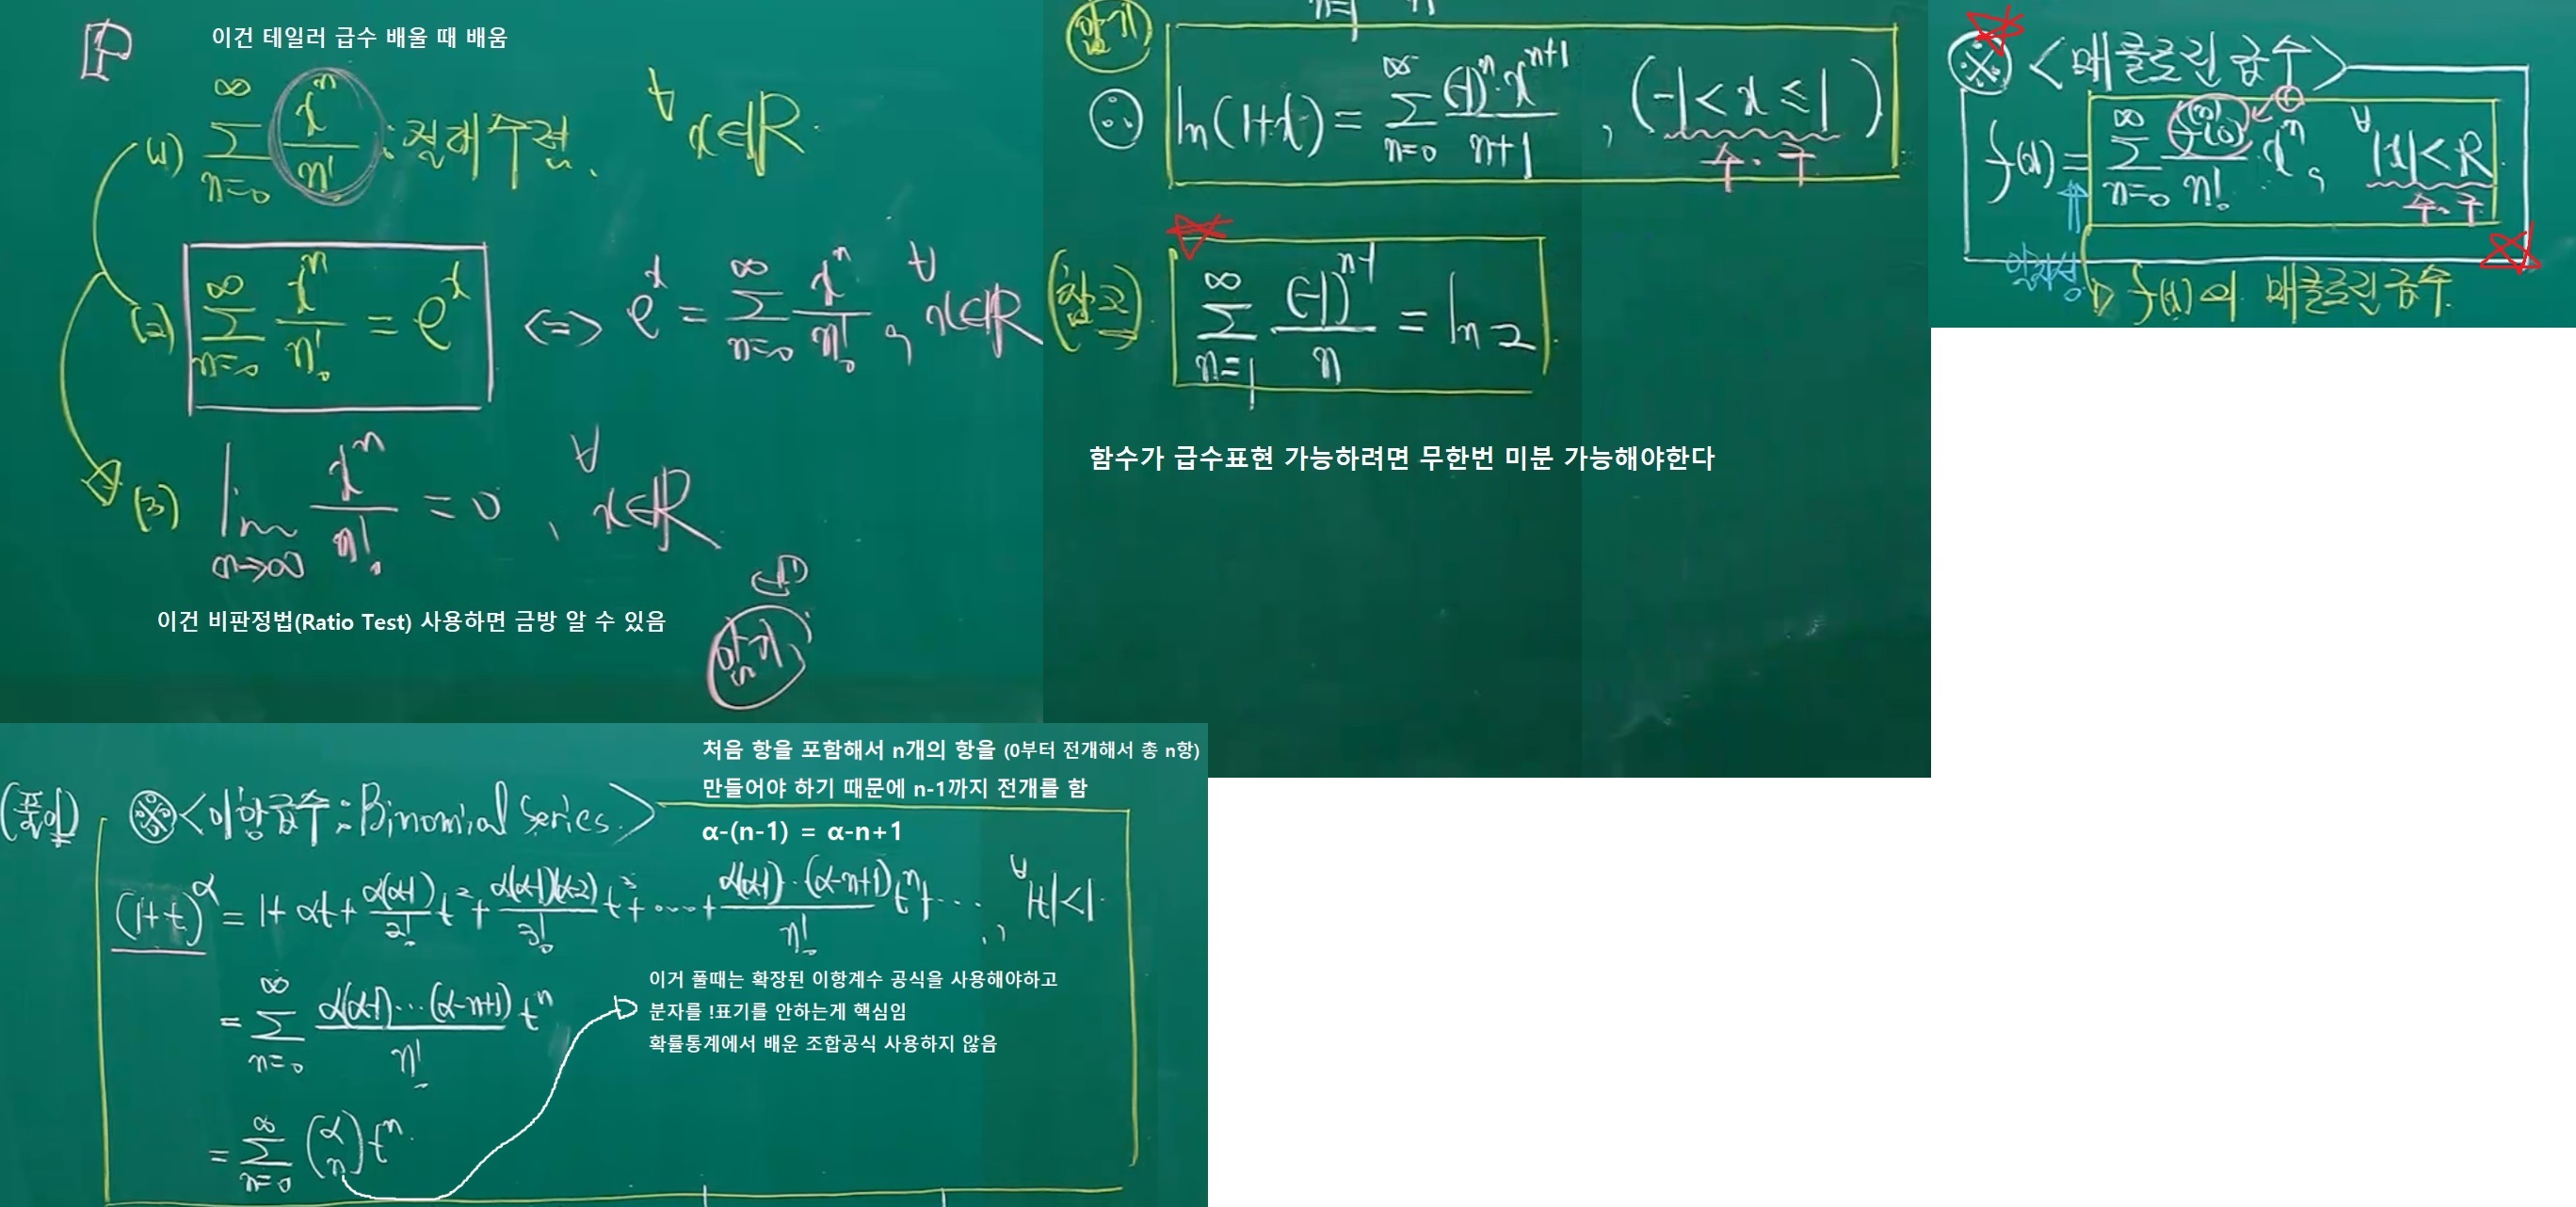 P
이건 테일러 급수 배울 때 배움
(1) ∞ Σ n=0 xⁿ/n! : 절대수렴. ∀x∈ℝ.
(2) ∞ Σ n=0 xⁿ/n! = eˣ ⇔ eˣ = ∞ Σ n=0 xⁿ/n!, ∀x∈ℝ
(3) lim n→∞ xⁿ/n! = 0, ∀x∈ℝ
이건 비판정법(Ratio Test) 사용하면 금방 알 수 있음
암기
암기
∴ ln(1+x) = ∞ Σ n=0 (-1)ⁿ·xⁿ⁺¹/n+1, (-1<x≤1)
수.구
(참고) ∞ Σ n=1 (-1)ⁿ⁻¹/n = ln2
함수가 급수표현 가능하려면 무한번 미분 가능해야한다
※ <매클로린 급수>
f(x) = ∞ Σ n=0 f⁽ⁿ⁾(0)/n! xⁿ, ∀|x|<R
수.구
f(x)의 매클로린 급수
처음 항을 포함해서 n개의 항을 (0부터 전개해서 총 n항)
만들어야 하기 때문에 n-1까지 전개를 함
α-(n-1) = α-n+1
(풀이) ※<이항급수 : Binomial Series.>
(1+t)^α = 1+αt+α(α-1)/2! t²+α(α-1)(α-2)/3! t³+····+α(α-1)···(α-n+1)/n! tⁿ+···, ∀|t|<1
= ∞ Σ n=0 α(α-1)···(α-n+1)/n! tⁿ
이거 풀때는 확장된 이항계수 공식을 사용해야하고
분자를 !표기를 안하는게 핵심임
확률통계에서 배운 조합공식 사용하지 않음
= ∞ Σ n=0 (α n) tⁿ.